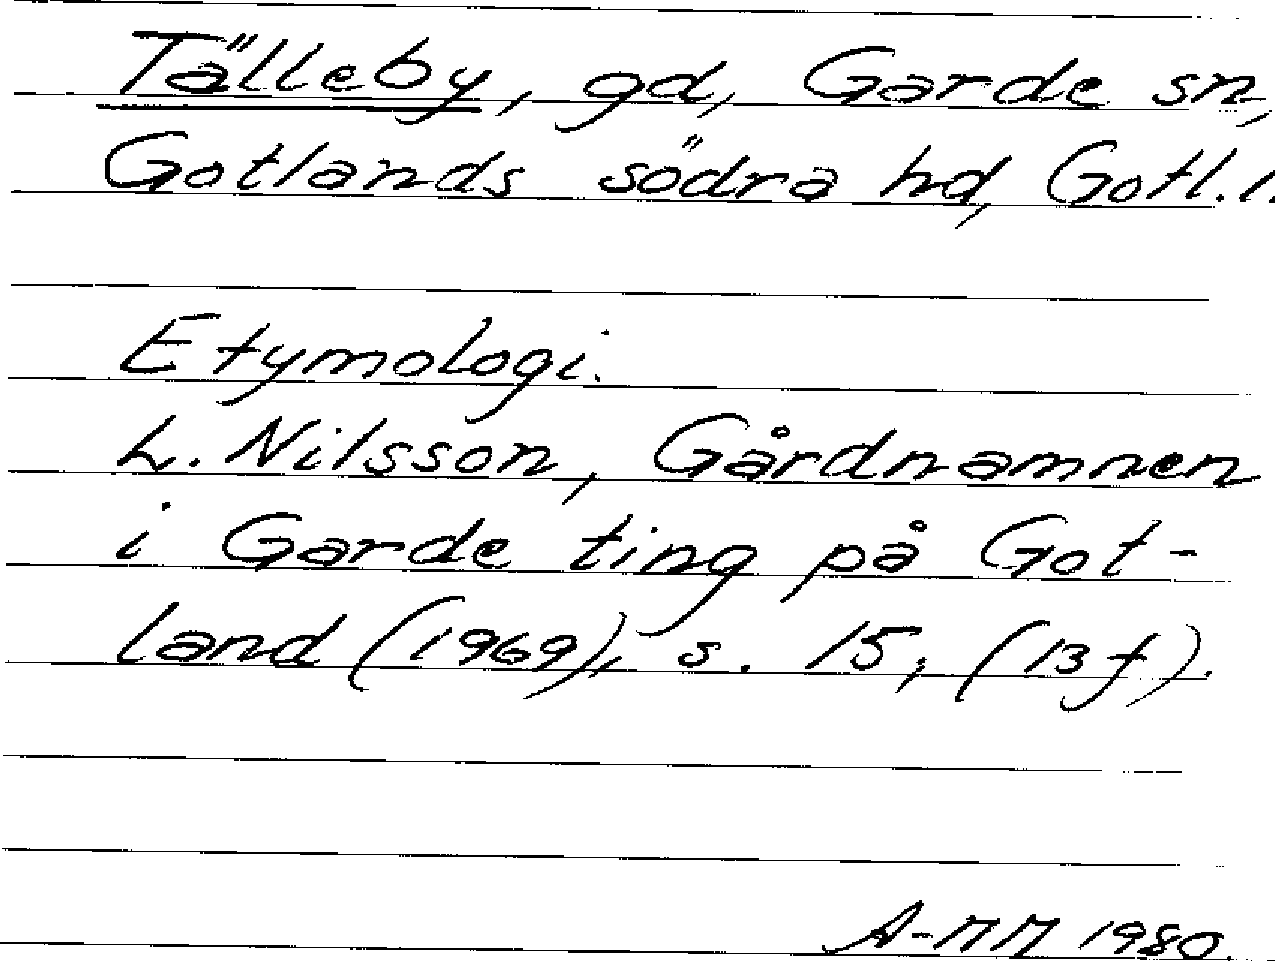 Tälleby, gd, Garde sn,
Gotlands södra hd, Gotl. l.
Etymologi.
L. Nilsson, Gårdnamnen
i Garde ting på Got-
land (1969), s. 15, (13 f).
A-MM 1980.